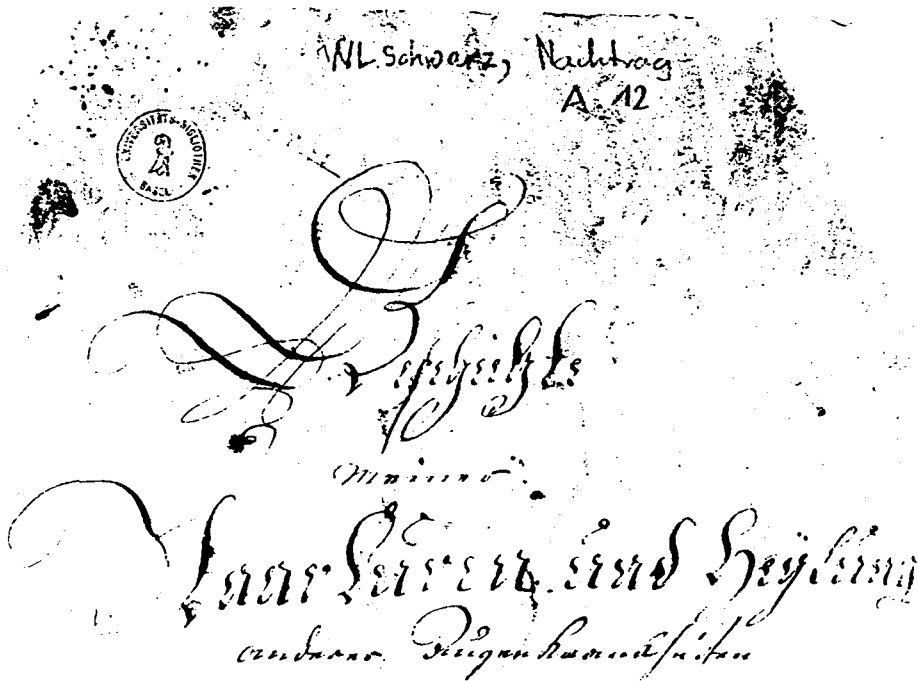 NL Schwarz, Nachtrag
A 12
UNIVERSITÄTS-BIBLIOTHEK BASEL
Geschichte
meiner
Staar Kuren und Heÿlung
anderer Augenkrankheiten